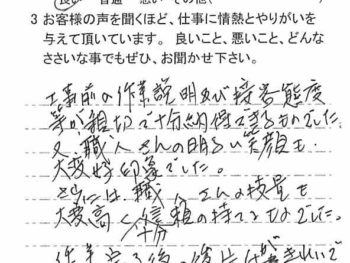 良い 普通 悪い その他(
3 お客様の声を聞くほど、仕事に情熱とやりがいを
与えて頂いています。 良いこと、悪いこと、どんな
ささいな事でもぜひ、お聞かせ下さい。
工事前の作業説明及び接客態度
等が親切で十分納得できるものでした。
又、職人さんの明るい笑顔も
大変好印象でした。
さらには、職人さんの技量も
大変高く十分信頼の持てるものでした。
作業完了後の後片付けがきれいで